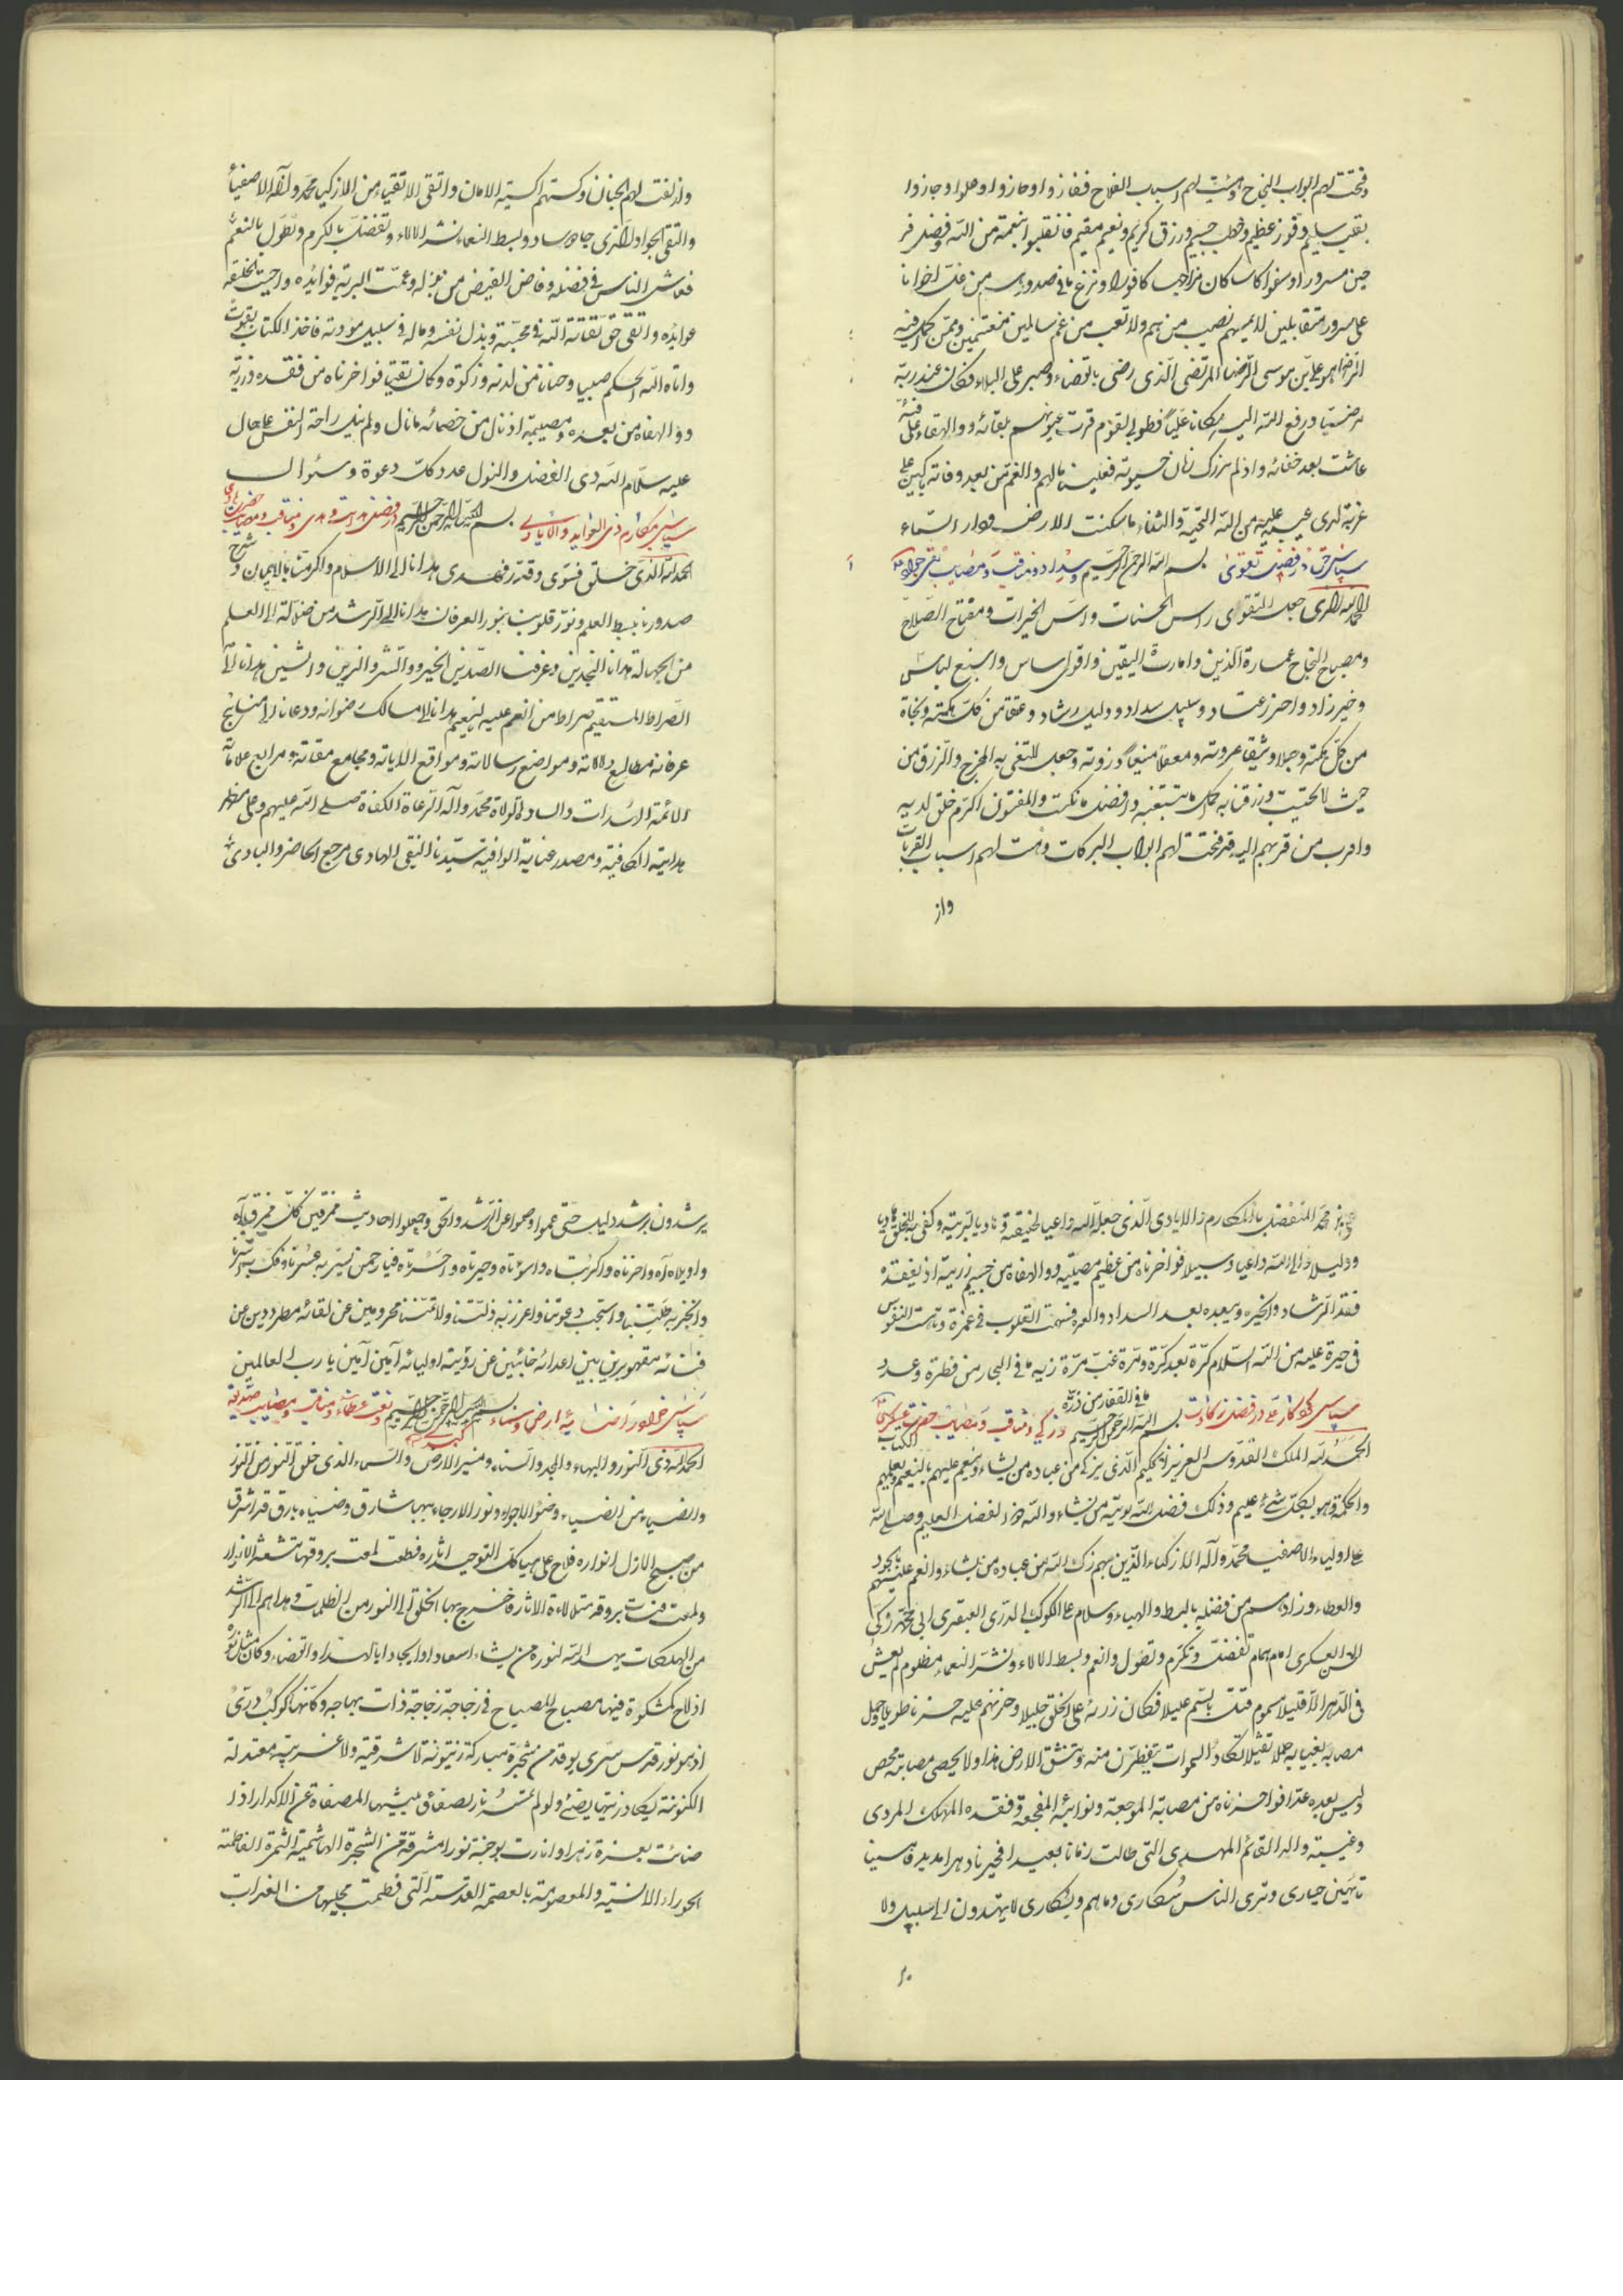 وفتحت لهم ابواب النجاح وهیئت لهم اسباب الفلاح ففازوا وحازوا وحلوا وجازوا
بقلب سلیم وفوز عظیم وخطب جسیم ورزق کریم ونعیم مقیم فانقلبوا بنعمة من الله وفضل فر
حین مسرورا وسقوا کاسا کان مزاجها کافورا ونزع ما فی صدورهم من غل اخوانا
علی سرر متقابلین لا یمسهم نصب من هم ولا تعب من غم سالمین متنعمین وممن کمل فیه
الرضا هو علی بن موسی الرضا المرتضی الذی رضی بالقضاء وصبر علی البلاء فکان عند ربه
مرضیا ورفع الله الیه مکانا علیا فطوبی لقوم قرت عیونهم بلقائه ووالهفاه علی فئة
عاشت بعد خفائه واذ لم ندرک زمان حیوته فعلینا بالهم والغم من بعد وفاته باکین علی
غربة لدی غیبه علیه من الله التحیة والثناء ما سکنت الارض ودار السماء
سپاس در فضیلت تقوی بسم الله الرحمن الرحیم وسداد ومناقب ومصایب تقی جواد
الحمد لله الذی جعل التقوی راس الحسنات واس الخیرات ومفتاح الصلاح
ومصباح النجاح عمارة الدین وامارة الیقین واقوی اساس واسبغ لباس
وخیر زاد واحرز عتاد وسبیل سداد ودلیل رشاد وعتقا من کل ملکة ونجاة
من کل هلکة وحبلا وثیقا عروته ومعقلا منیعا ذروته وجعل للمتقی به المخرج والرزق من
حیث لا یحتسب ورزقنا به کمال ما نبتغیه وافضل ما نکتسب والمتقون اکرم خلق لدیه
واقرب من قربهم الیه قد فتحت لهم ابواب البرکات وهیئت لهم اسباب القربات
واز
وازلفت لهم الجنان وکستهم اکسیة الامان واتقی الاتقیاء من الازکیا محمد وآله الاصفیاء
والتقی الجواد الذی جاد وساد وبسط النعماء نشر الالاء وتفضل بالکرم وتطول بالنعم
فعاش الناس فی فضله وفاض الفیض من بذله وعمت البریة فوایده واحیت الخلیقة
عوایده واتقی حق تقاته الله فی محبته وبذل نفسه وماله فی سبیل مودته فاخذ الکتاب بقوة
واتاه الله الحکم صبیا وحنانا من لدنه وزکوة وکان تقیا فواحزناه من فقده ورزیته
ووالهفاه من بعده ومصیبته اذ نال من خصمائه ما نال ولم ینل راحة النفس علی حال
علیه سلام الله ذی الفضل والنول عدد کل دعوة وسئوال
سپاس مکارم ذی العواید والایادی بسم الله الرحمن الرحیم در فضیلت هدایت وهادی ومناقب ومصایب حضرت هادی
الحمد لله الذی خلق فسوی وقدر فهدی هدانا الی الاسلام واکرمنا بالایمان وشرح
صدورنا ببسط العلم ونور قلوبنا بنور العرفان هدانا الی الرشد من ضلالة الی العلم
من الجهالة هدانا النجدین وعرفنا الضدین الخیر والشر والزین والشین هدانا الی
الصراط المستقیم صراط من انعم علیه لینعم هدانا الی مسالک رضوانه ودعانا الی مناهج
عرفانه مطالع دلالاته ومواضع رسالاته ومواقع الایاته ومجامع مقاته ومرابع علاماته
الائمة السدات والساد الولاة محمد وآله الرعاة الکفاة صلی الله علیهم وعلی مظهر
هدایته الکافیة ومصدر عنایته الوافیة سیدنا النقی الهادی مرجع الحاضر والبادی
محمد المتفضل بالمکارم والایادی الذی جعله الله داعیا لخلیقته وهادیا لبریته وکفی به للخلق هادیا
ودلیلا والی الله داعیا وسبیلا فواحزناه من عظیم مصیبته ووالهفاه من جسیم رزیته اذ بفقده
فقد الرشاد والخیر وببعده بعد السداد والعز فتهمت القلوب فی غمرة وتاهت النفوس
فی حیرة علیه من الله السلام کرة بعد کرة ومرة غب مرة زنة ما فی البحار من قطرة وعدد
ما فی القفار من ذرة
سپاس کردگار در فضیلت زکاوت بسم الله الرحمن الرحیم وزکی ومناقب ومصایب حضرت عسکری
الحمد لله الملک القدوس العزیز الحکیم الذی یزکی من عباده من یشاء وینعم علیهم بالنعیم ویعلمهم الکتاب
والحکمة وهو بکل شئ علیم وذلک فضل الله یوتیه من یشاء والله ذو الفضل العظیم وصلی الله
علی اولیاء الاصفیاء محمد وآله الازکیاء الذین بهم زکی الله من عباده من یشاء وانعم علیهم بالجود
والعطاء وزادهم من فضله بالبسط والهباء وسلام علی الکوکب الدری العبقری ابی محمد زکی
الحسن العسکری امام همام تفضل وتکرم وتطول وانعم وبسط الالاء ونشر النعماء مظلوم لم یعش
فی الدهر الا قلیلا مسموم قتل بالسم علیلا فکان رزئه علی الخلق جلیلا وحزنهم علیه حزنا طویلا وحمل
مصابه بغیابه حملا ثقیلا تکاد السموات یتفطرن منه وتنشق الارض هذا ولا یحصی مصابه محص
ولیس بعده عدا فواحزناه من مصابه الموجعة ونوائبه المفجعة وفقده المهلک المردی
وغیبته والد القائم المهدی التی طالت زمانا بعیدا فحیرنا دهرا مدیدا فامسینا
تائهین حیاری وتری الناس سکاری وما هم بسکاری لا یهتدون الی سبیل ولا
یر
یرشدون برشد دلیل حتی عموا وصموا عن الرشد والحق وجعلوا احادیث ممزقین کل ممزق فاه
واویلاه آه واحزناه واکربتاه واسوتاه وحیرتاه واحسرتاه فیا رحمن یسر به عسرنا وفک به اسرنا
وانجز به طلبتنا واستجب دعوتنا واعزز به ذلتنا ولا تمتنا محرومین عن لقائه مطرودین عن
فنائه مقهورین بین اعدائه خائبین عن رؤیة اولیائه آمین آمین یا رب العالمین
سپاس ارض وسماء بسم الله الرحمن الرحیم ونعت عظماء ومناقب ومصایب صدیقه
کبری
الحمد لله ذی النور والبهاء والمجد والسناء ومنیر الارض والسماء الذی خلق النور من النور
والضیاء من الضیاء وضوء الاجواء ونور الارجاء ببهاء شارق وضیاء بارق قد اشرق
من صبح الازل انواره فلاح علی هیاکل التوحید اثاره فطلعت لمعت بروقها تشعشع الانوار
ولمعت بروقه متلالاة الاثار فاخرج بها الخلق الی النور من الظلمات وهداهم الی الرشد
من الهلکات یهدی الله لنوره من یشاء اسعادا وایجادا بالهدا والقضاء وکان مثل نوره
اذ لاح کمشکوة فیها مصباح المصباح فی زجاجة زجاجة ذات بهاجه وکانها کوکب دری
اذ هو نور قدس سری یوقد من شجرة مبارکة زیتونة لا شرقیة ولا غربیة معتدلة
الکنونة یکاد زیتها یضئ ولو لم تمسسه نار بصفاء مشیتها المصفاة عن الاکدار اذا
ضائت بغرة زهرا وانارت بوجنة نورا مشرقة من الشجرة الهاشمیة الثمرة الفاطمة
الحوراء الانسیة والمعصومة بالعصمة القدسیة التی فطمت محبیها من الغبرات